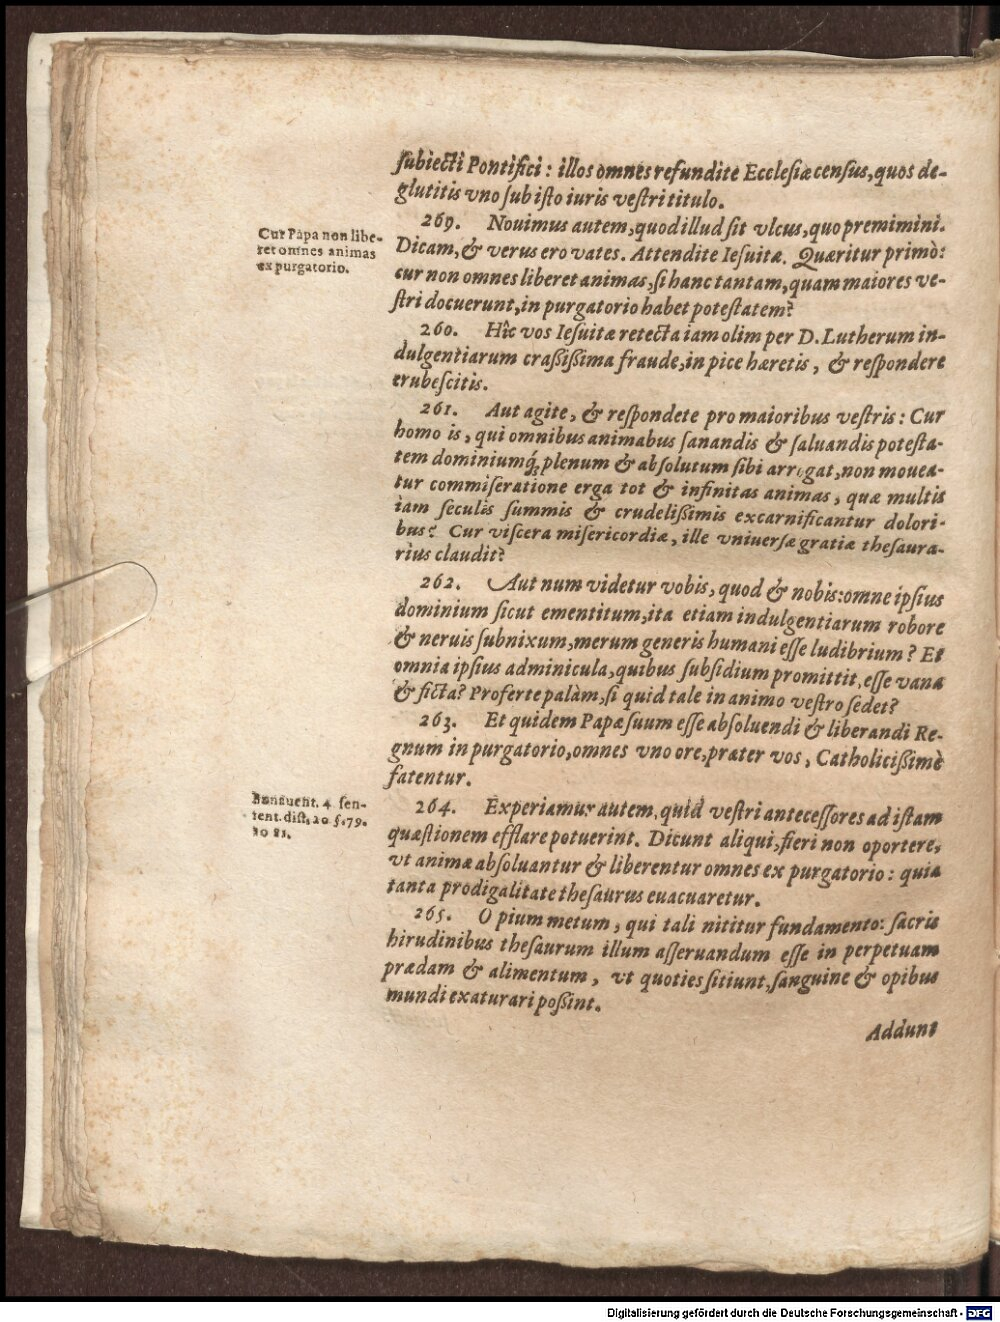 ſubiecti Pontifici: illos omnes refundite Eccleſiæ cenſus, quos de-
glutitis vno ſub iſto iuris veſtri titulo.
269. Nouimus autem, quod illud ſit vlcus, quo premimini.
Cur Papa non libe-
ret omnes animas
ex purgatorio.
Dicam, & verus ero vates. Attendite Ieſuitæ. Quæritur primò:
cur non omnes liberet animas, ſi hanc tantam, quam maiores ve-
ſtri docuerunt, in purgatorio habet poteſtatem?
260. Hîc vos Ieſuitæ retecta iam olim per D. Lutherum in-
dulgentiarum craßißima fraude, in pice hæretis, & reſpondere
erubeſcitis.
261. Aut agite, & reſpondete pro maioribus veſtris: Cur
homo is, qui omnibus animabus ſanandis & ſaluandis poteſta-
tem dominiumq́; plenum & abſolutum ſibi arrogat, non mouea-
tur commiſeratione erga tot & infinitas animas, quæ multis
iam ſeculis ſummis & crudelißimis excarnificantur dolori-
bus? Cur viſcera miſericordiæ, ille vniuerſæ gratiæ theſaura-
rius claudit?
262. Aut num videtur vobis, quod & nobis: omne ipſius
dominium ſicut ementitum, ita etiam indulgentiarum robore
& neruis ſubnixum, merum generis humani eſſe ludibrium? Et
omnia ipſius adminicula, quibus ſubſidium promittit, eſſe vana
& ficta? Proferte palàm, ſi quid tale in animo veſtro ſedet?
263. Et quidem Papæ ſuum eſſe abſoluendi & liberandi Re-
gnum in purgatorio, omnes vno ore, præter vos, Catholicißimè
fatentur.
Bonauent. 4. ſen-
tent. diſt. 20 §. 79.
80 81.
264. Experiamur autem, quid veſtri anteceſſores ad iſtam
quæſtionem efflare potuerint. Dicunt aliqui, fieri non oportere,
vt animæ abſoluantur & liberentur omnes ex purgatorio: quia
tanta prodigalitate theſaurus euacuaretur.
265. O pium metum, qui tali nititur fundamento: ſacris
hirudinibus theſaurum illum aſſeruandum eſſe in perpetuam
prædam & alimentum, vt quoties ſitiunt, ſanguine & opibus
mundi exaturari poßint.
Addunt
Digitalisierung gefördert durch die Deutsche Forschungsgemeinschaft - DFG